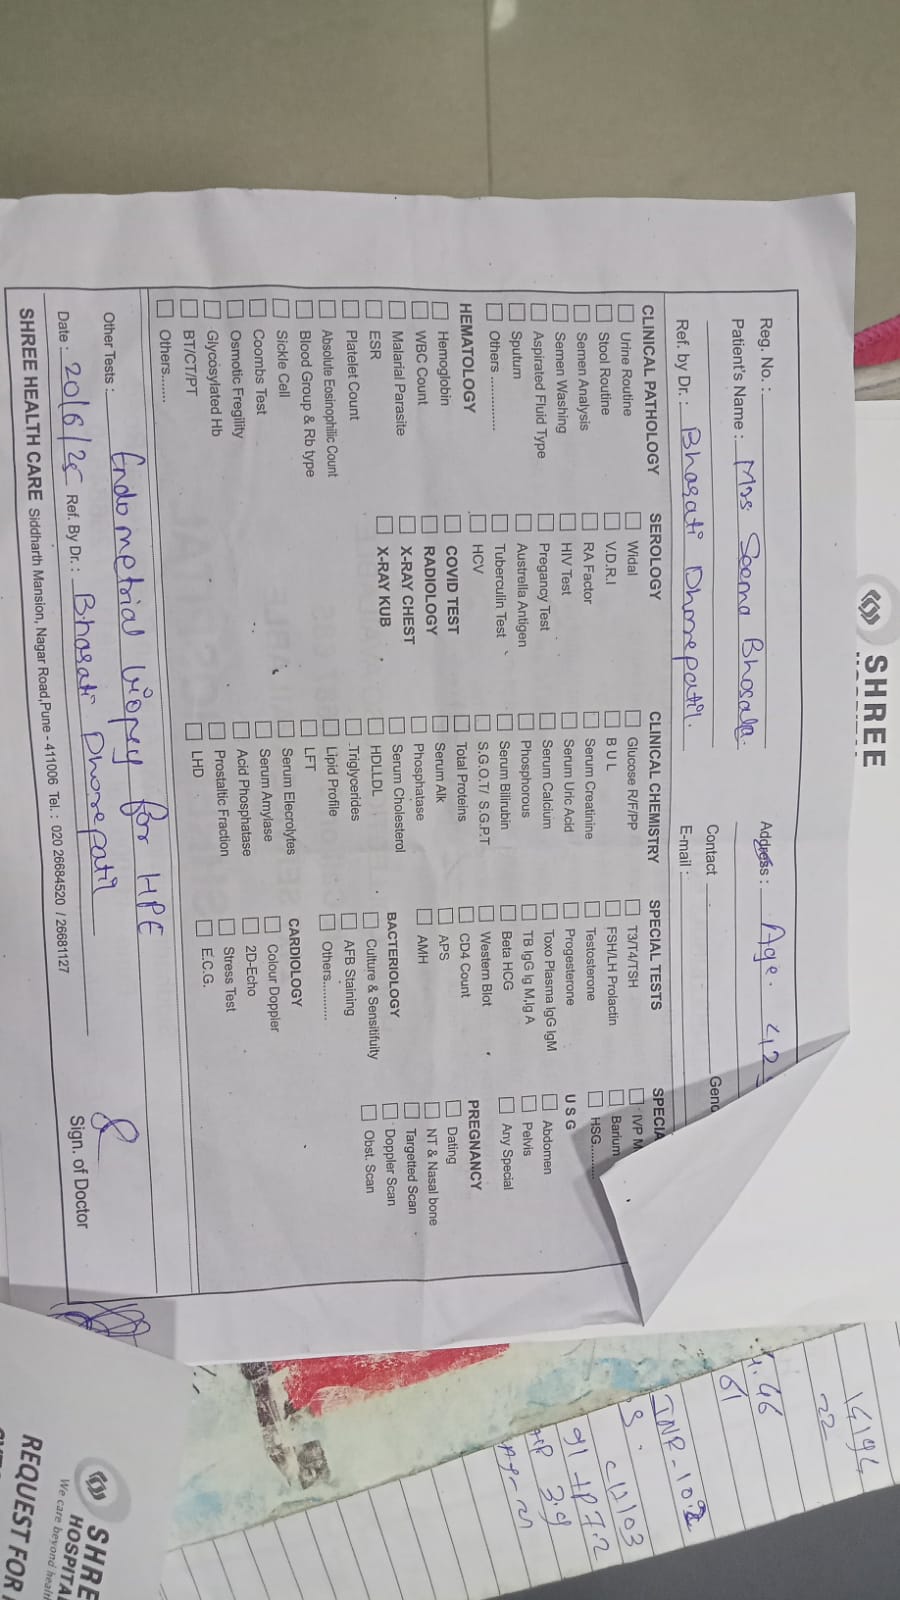 SHREE
Reg. No. :
Patient's Name : Mrs Seema Bhosale.
Address : Age. 42
Contact
Gend
Ref. by Dr. : Bharati Dhorepatil.
E-mail :
CLINICAL PATHOLOGY
Urine Routine
Stool Routine
Semen Analysis
Semen Washing
Aspirated Fluid Type
Sputum
Others ................
HEMATOLOGY
Hemoglobin
WBC Count
Malarial Parasite
ESR
Platelet Count
Absolute Eosinophilic Count
Blood Group & Rb type
Sickle Cell
Coombs Test
Osmotic Fregility
Glycosylated Hb
BT/CT/PT
Others......
SEROLOGY
Widal
V.D.R.I
RA Factor
HIV Test
Pregancy Test
Australla Antigen
Tuberculin Test
HCV
COVID TEST
RADIOLOGY
X-RAY CHEST
X-RAY KUB
CLINICAL CHEMISTRY
Glucose R/F/PP
B U L
Serum Creatinine
Serum Uric Acid
Serum Calcium
Phosphorous
Serum Bilirubin
S.G.O.T/ S.G.P.T
Total Proteins
Serum Alk
Phosphatase
Serum Cholesterol
HDLLDL
Triglycerides
Lipid Profile
LFT
Serum Elecrolytes
Serum Amylase
Acid Phosphatase
Prostaltic Fraction
LHD
SPECIAL TESTS
T3/T4/TSH
FSH/LH Prolactin
Testosterone
Progesterone
Toxo Plasma IgG IgM
TB IgG Ig M,Ig A
Beta HCG
Western Blot
CD4 Count
APS
AMH
BACTERIOLOGY
Culture & Sensitifuity
AFB Staining
Others...........
CARDIOLOGY
Colour Doppler
2D-Echo
Stress Test
E.C.G.
SPECIA
IVP M
Barium
HSG.........
U S G
Abdomen
Pelvis
Any Special
PREGNANCY
Dating
NT & Nasal bone
Targetted Scan
Doppler Scan
Obst. Scan
Other Tests : Endometrial biopsy for HPE
Date : 20/6/25 Ref. By Dr. : Bharati Dhorepatil
Sign. of Doctor
SHREE HEALTH CARE Siddharth Mansion, Nagar Road,Pune - 411006 Tel. : 020 26684520 / 26681127
22
61
INR-1.02
91 TP 7.2
3.9
SHRE
HOSPITA
We care beyond healt
REQUEST FOR